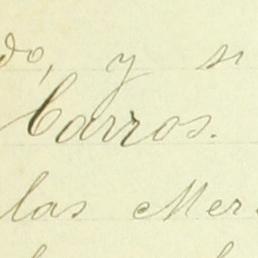 do, y si
Carros.
las Mer